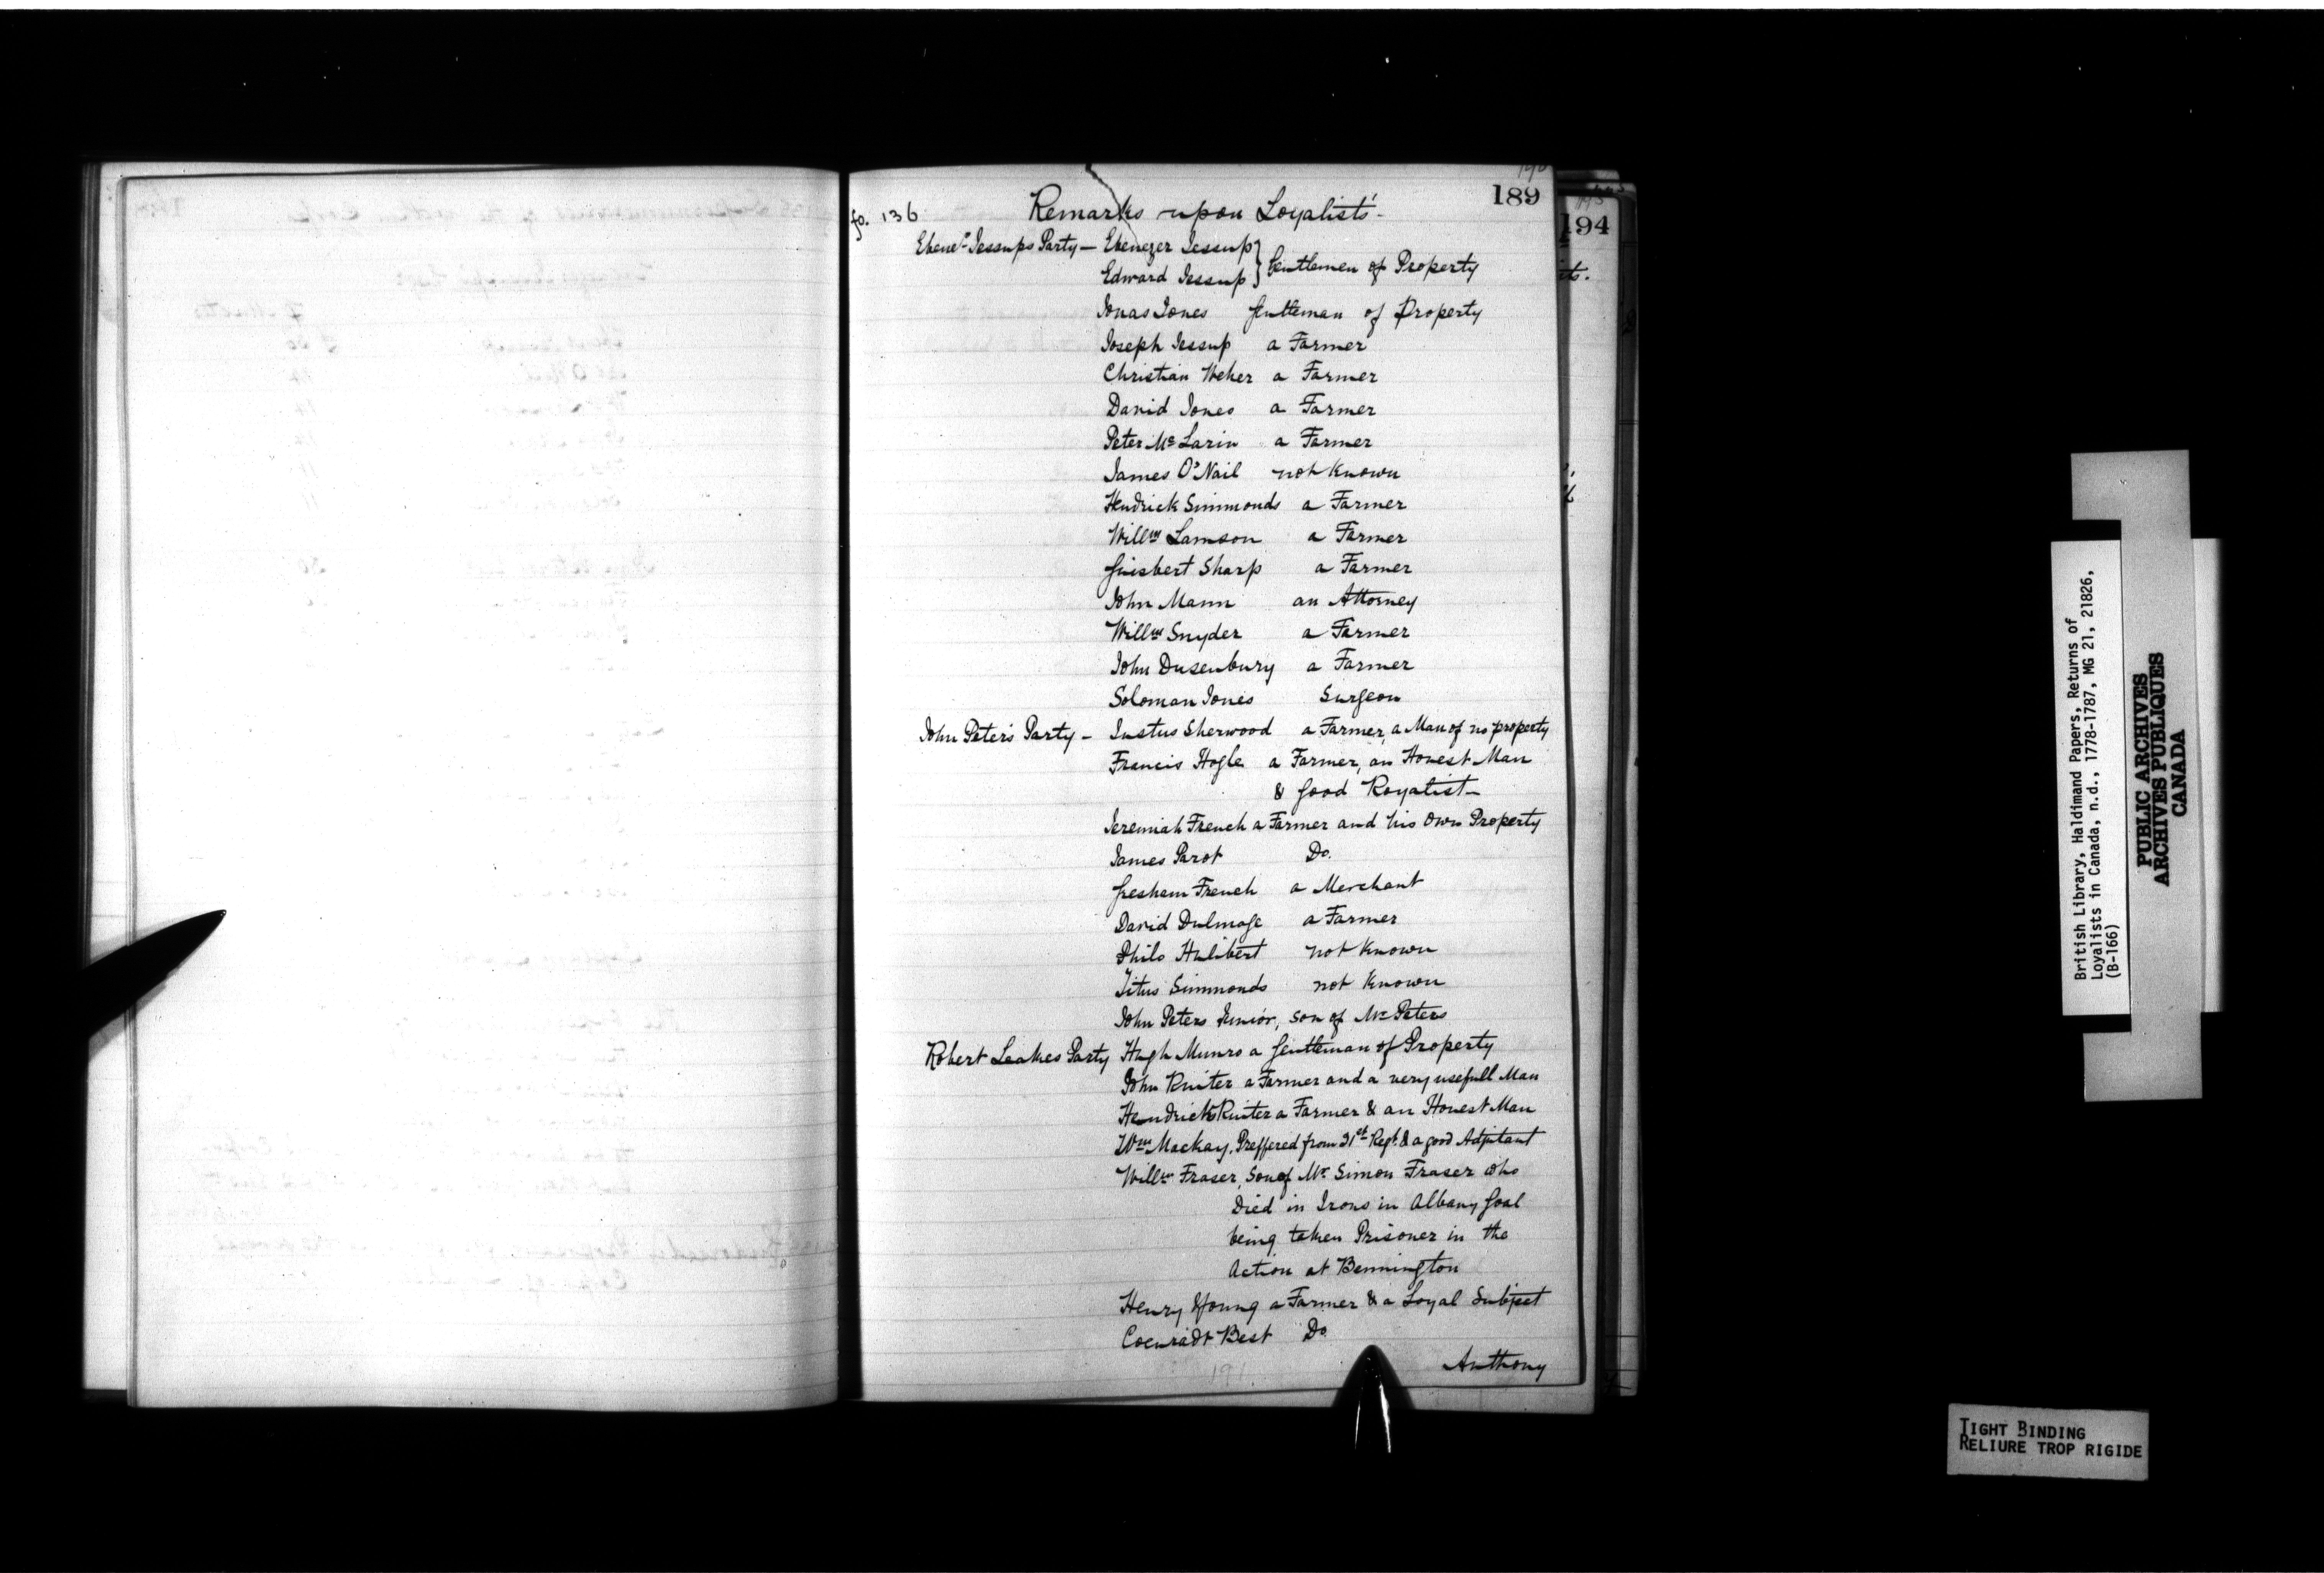 189
194
fo. 136 Remarks upon Loyalists -
Ebener Jessups Party — Ebenezer Jessup
Edward Jessup } Gentlemen of Property
Jonas Jones Gentleman of Property
Joseph Jessup a Farmer
Christian Weher a Farmer
David Jones a Farmer
Peter Mc Larin a Farmer
James O'Nail not known
Hendrick Simmonds a Farmer
Willm Lamson a Farmer
Guisbert Sharp a Farmer
John Mann an Attorney
Willm Snyder a Farmer
John Dusenbury a Farmer
Soloman Jones Surgeon
John Peters Party — Justus Sherwood a Farmer, a Man of no property
Francis Hogle a Farmer, an Honest Man
& good Royalist —
Jeremiah French a Farmer and his own Property
James Parot Do.
Gesham French a Merchant
David Dulmage a Farmer
Philo Hulibert not known
Titus Simmonds not known
John Peters Junior, son of Mr Peters
Robert Leakes Party Hugh Munro a Gentleman of Property
John Ruiter a Farmer and a very usefull Man
Hendrick Ruiter a Farmer & an Honest Man
Wm Mackay. Preffered from 21st Regt. & a good Adjutant
Willm Fraser, Son of Mr Simon Fraser who
Died in Irons in Albany Goal
being taken Prisoner in the
Action at Bennington
Henry Young a Farmer & a Loyal Subject
Coenradt Best Do
Anthony
191
British Library, Haldimand Papers, Returns of
Loyalists in Canada, n.d., 1778-1787, MG 21, 21826,
(B-166)
PUBLIC ARCHIVES
ARCHIVES PUBLIQUES
CANADA
TIGHT BINDING
RELIURE TROP RIGIDE